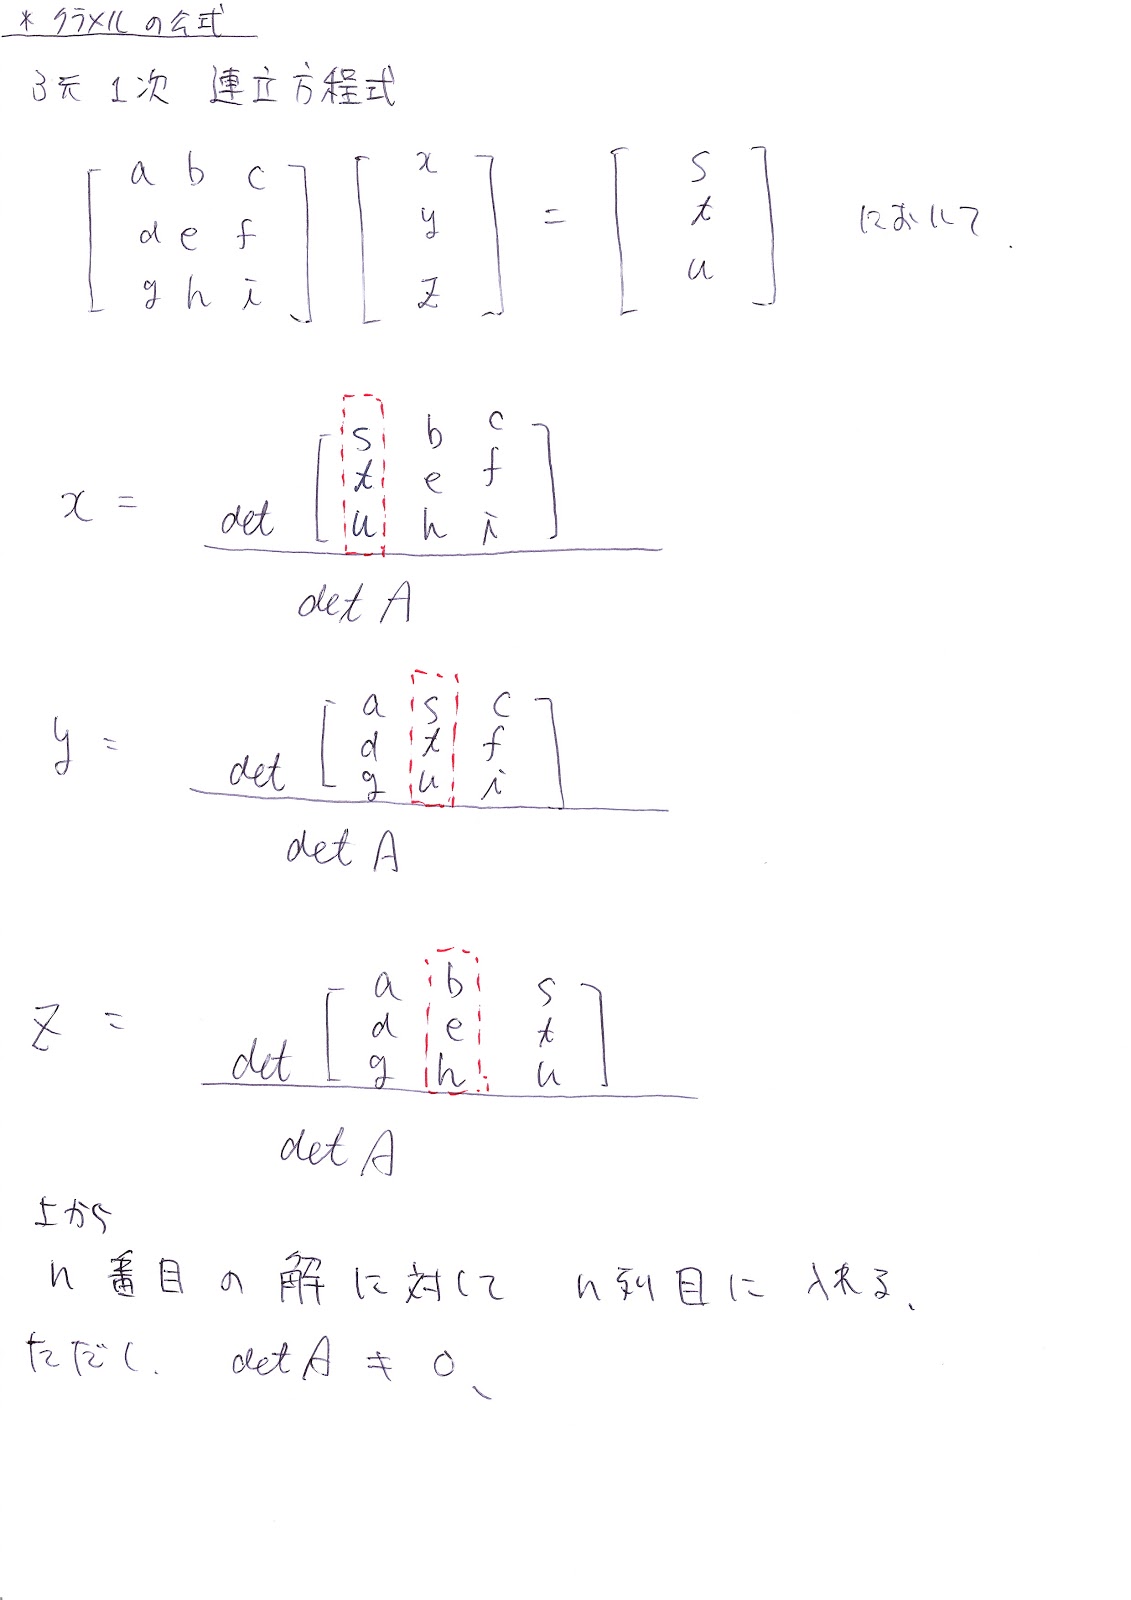 * クラメルの公式
3元1次 連立方程式
[ a b c ] [ x ] = [ s ]
[ d e f ] [ y ] [ t ] において.
[ g h i ] [ z ] [ u ]
x = det [ s b c
t e f
u h i ]
det A
y = det [ a s c
d t f
g u i ]
det A
z = det [ a b s
d e t
g h u ]
det A
上から
n 番目の解に対して n列目に入れる、
ただし. det A ≠ 0、